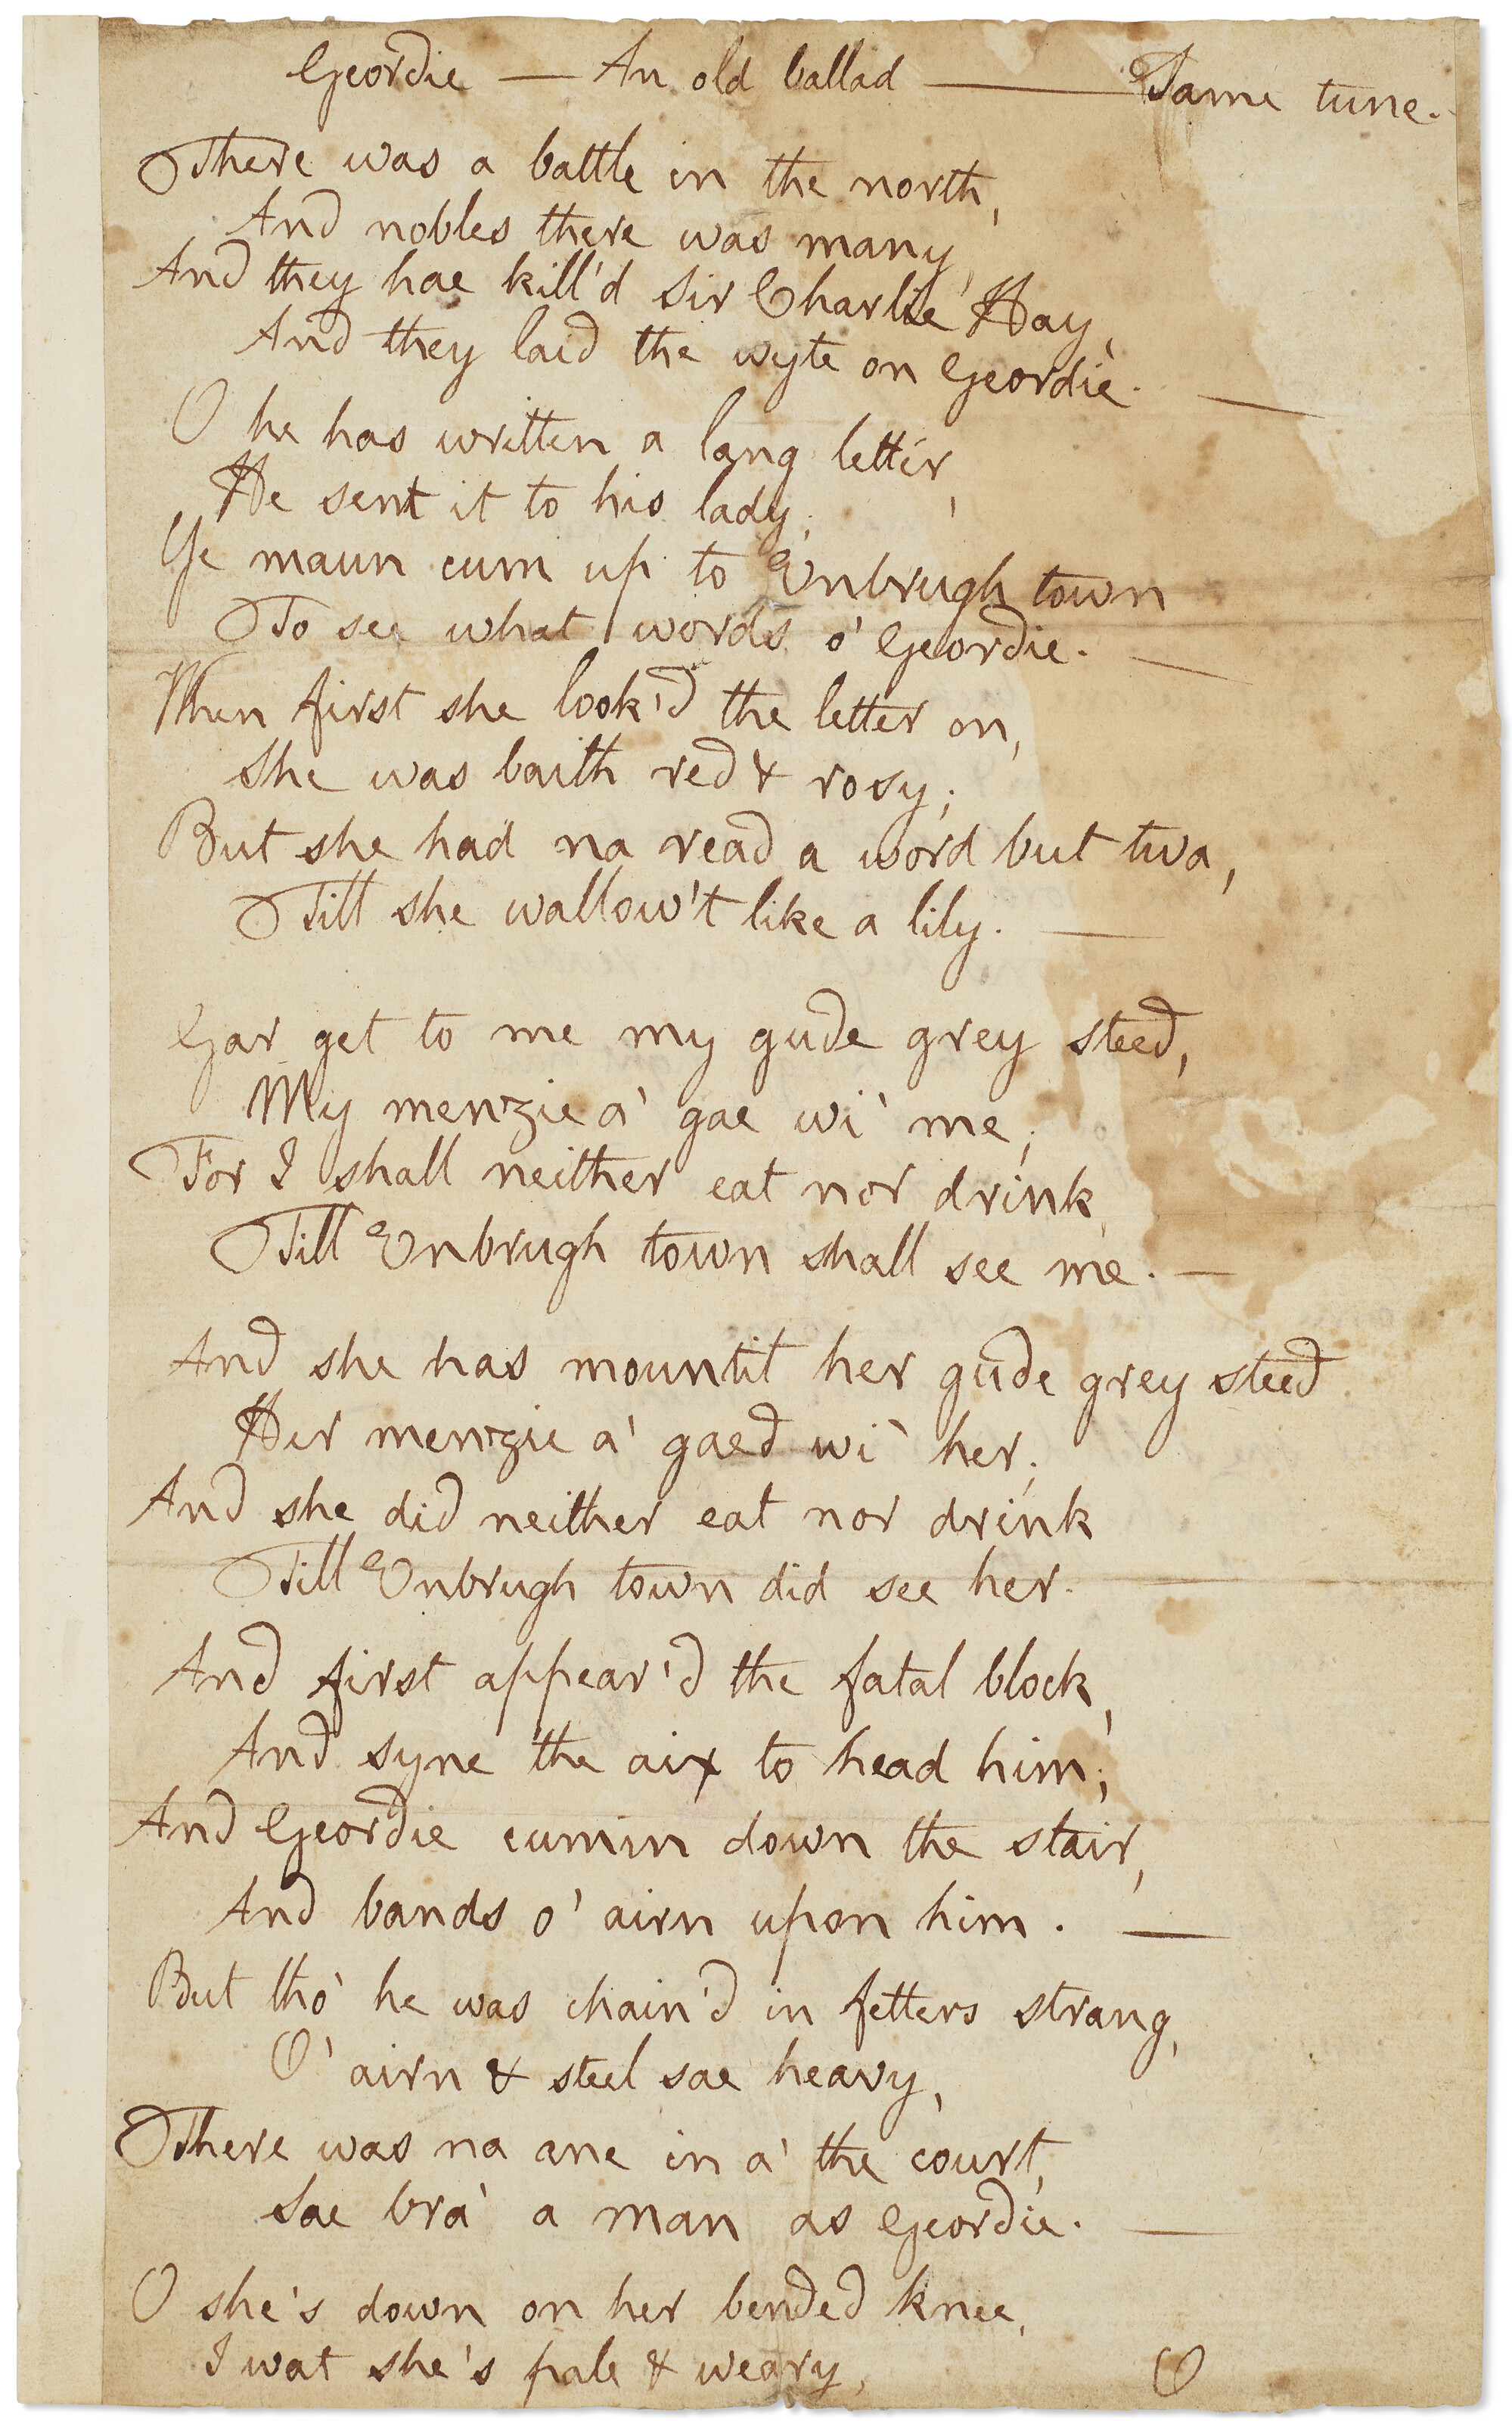 Geordie — An old ballad ——— Same tune.
There was a battle in the north,
And nobles there was many,
And they hae kill'd Sir Charlie Hay,
And they laid the wyte on Geordie. —
O he has written a lang letter,
He sent it to his lady;
Ye maun cum up to Enbrugh town
To see what words o' Geordie. —
When first she look'd the letter on,
She was baith red & rosy;
But she had na read a word but twa,
Till she wallow't like a lily. —
Gar get to me my gude grey steed,
My menzie a' gae wi' me;
For I shall neither eat nor drink,
Till Enbrugh town shall see me. —
And she has mountit her gude grey steed
Her menzie a' gaed wi' her;
And she did neither eat nor drink
Till Enbrugh town did see her.
And first appear'd the fatal block,
And syne the aix to head him;
And Geordie cumin down the stair,
And bands o' airn upon him. —
But tho' he was chain'd in fetters strang,
O' airn & steel sae heavy,
There was na ane in a' the court,
Sae bra' a man as Geordie. —
O she's down on her bended knee,
I wat she's pale & weary,
O